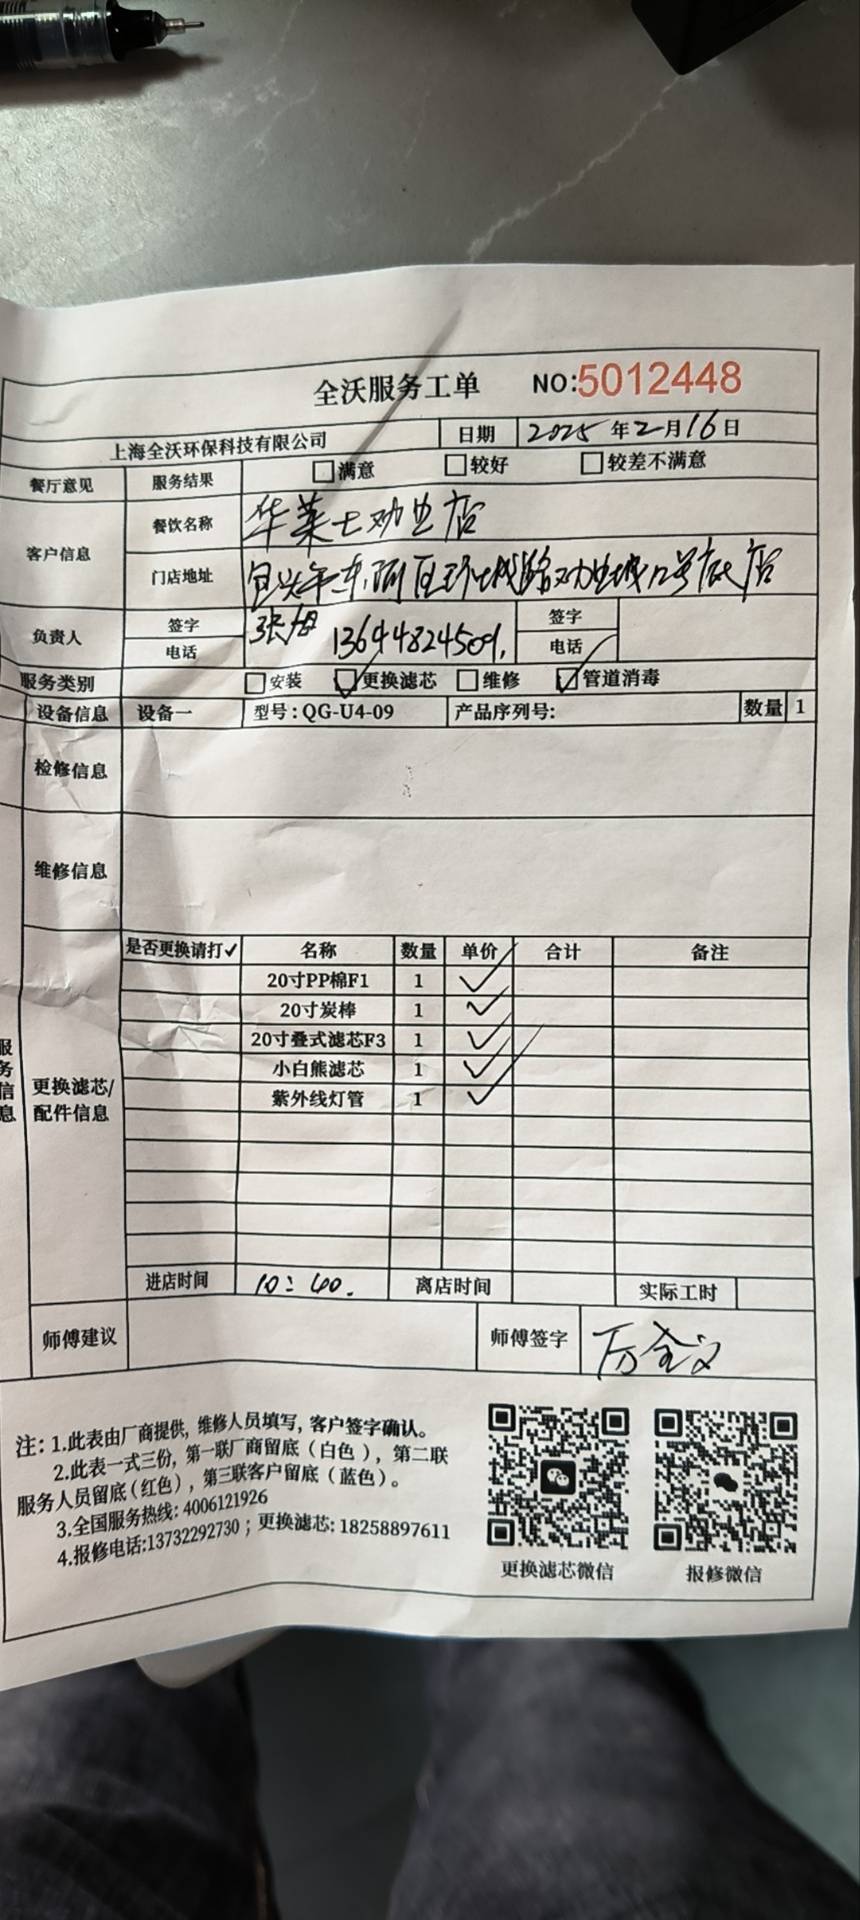 全沃服务工单 NO:5012448
上海全沃环保科技有限公司 日期 2025年2月16日
餐厅意见 服务结果 □满意 □较好 □较差不满意
客户信息 餐饮名称 华莱士劝业店
门店地址 包头市东河区环城路劝业城12号底店
负责人 签字 张 签字
电话 13644824509. 电话
服务类别 □安装 ☑更换滤芯 □维修 ☑管道消毒
设备信息 设备一 型号:QG-U4-09 产品序列号: 数量 1
检修信息
维修信息
服务信息
更换滤芯/配件信息
是否更换请打✓ 名称 数量 单价 合计 备注
20寸PP棉F1 1 ✓
20寸炭棒 1 ✓
20寸叠式滤芯F3 1 ✓
小白熊滤芯 1 ✓
紫外线灯管 1 ✓
进店时间 10:40. 离店时间 实际工时
师傅建议 师傅签字
注: 1.此表由厂商提供, 维修人员填写, 客户签字确认。
2.此表一式三份, 第一联厂商留底（白色）, 第二联
服务人员留底(红色), 第三联客户留底（蓝色）。
3.全国服务热线: 4006121926
4.报修电话:13732292730 ; 更换滤芯: 18258897611
更换滤芯微信 报修微信